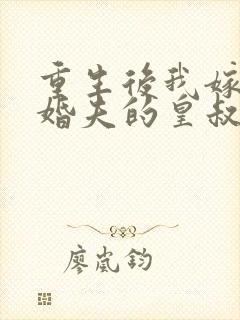 重生後我嫁
婚夫的皇叔
廖嵐鈞